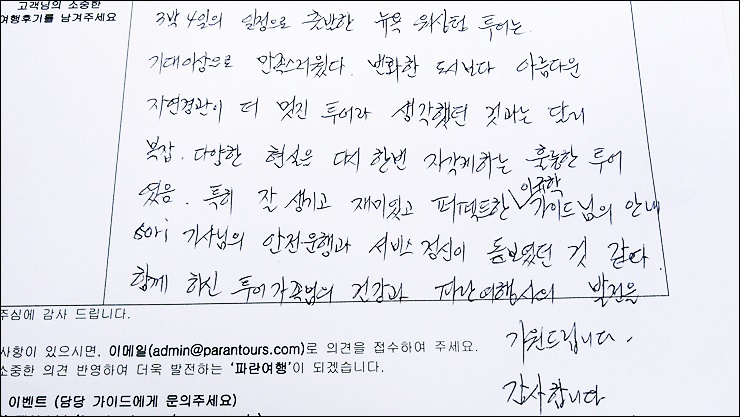 고객님의 소중한
여행후기를 남겨주세요
3박 4일의 일정으로 출발한 뉴욕 워싱턴 투어는
기대이상으로 만족스러웠다. 번화한 도시보다 아름다운
자연경관이 더 멋진 투어라 생각했던 것과는 달리
복잡. 다양한 현실을 다시 한번 자각케하는 훌륭한 투어
였음. 특히 잘 생기고 재미있고 퍼펙트한 가이드님의 안내
기사님의 안전운행과 서비스 정신이 돋보였던 것 같다.
함께 하신 투어가족분들의 건강과 파란여행사의 발전을
기원드립니다.
감사합니다
주심에 감사 드립니다.
사항이 있으시면, 이메일(admin@parantours.com)로 의견을 접수하여 주세요.
소중한 의견 반영하여 더욱 발전하는 '파란여행'이 되겠습니다.
이벤트 (담당 가이드에게 문의주세요)